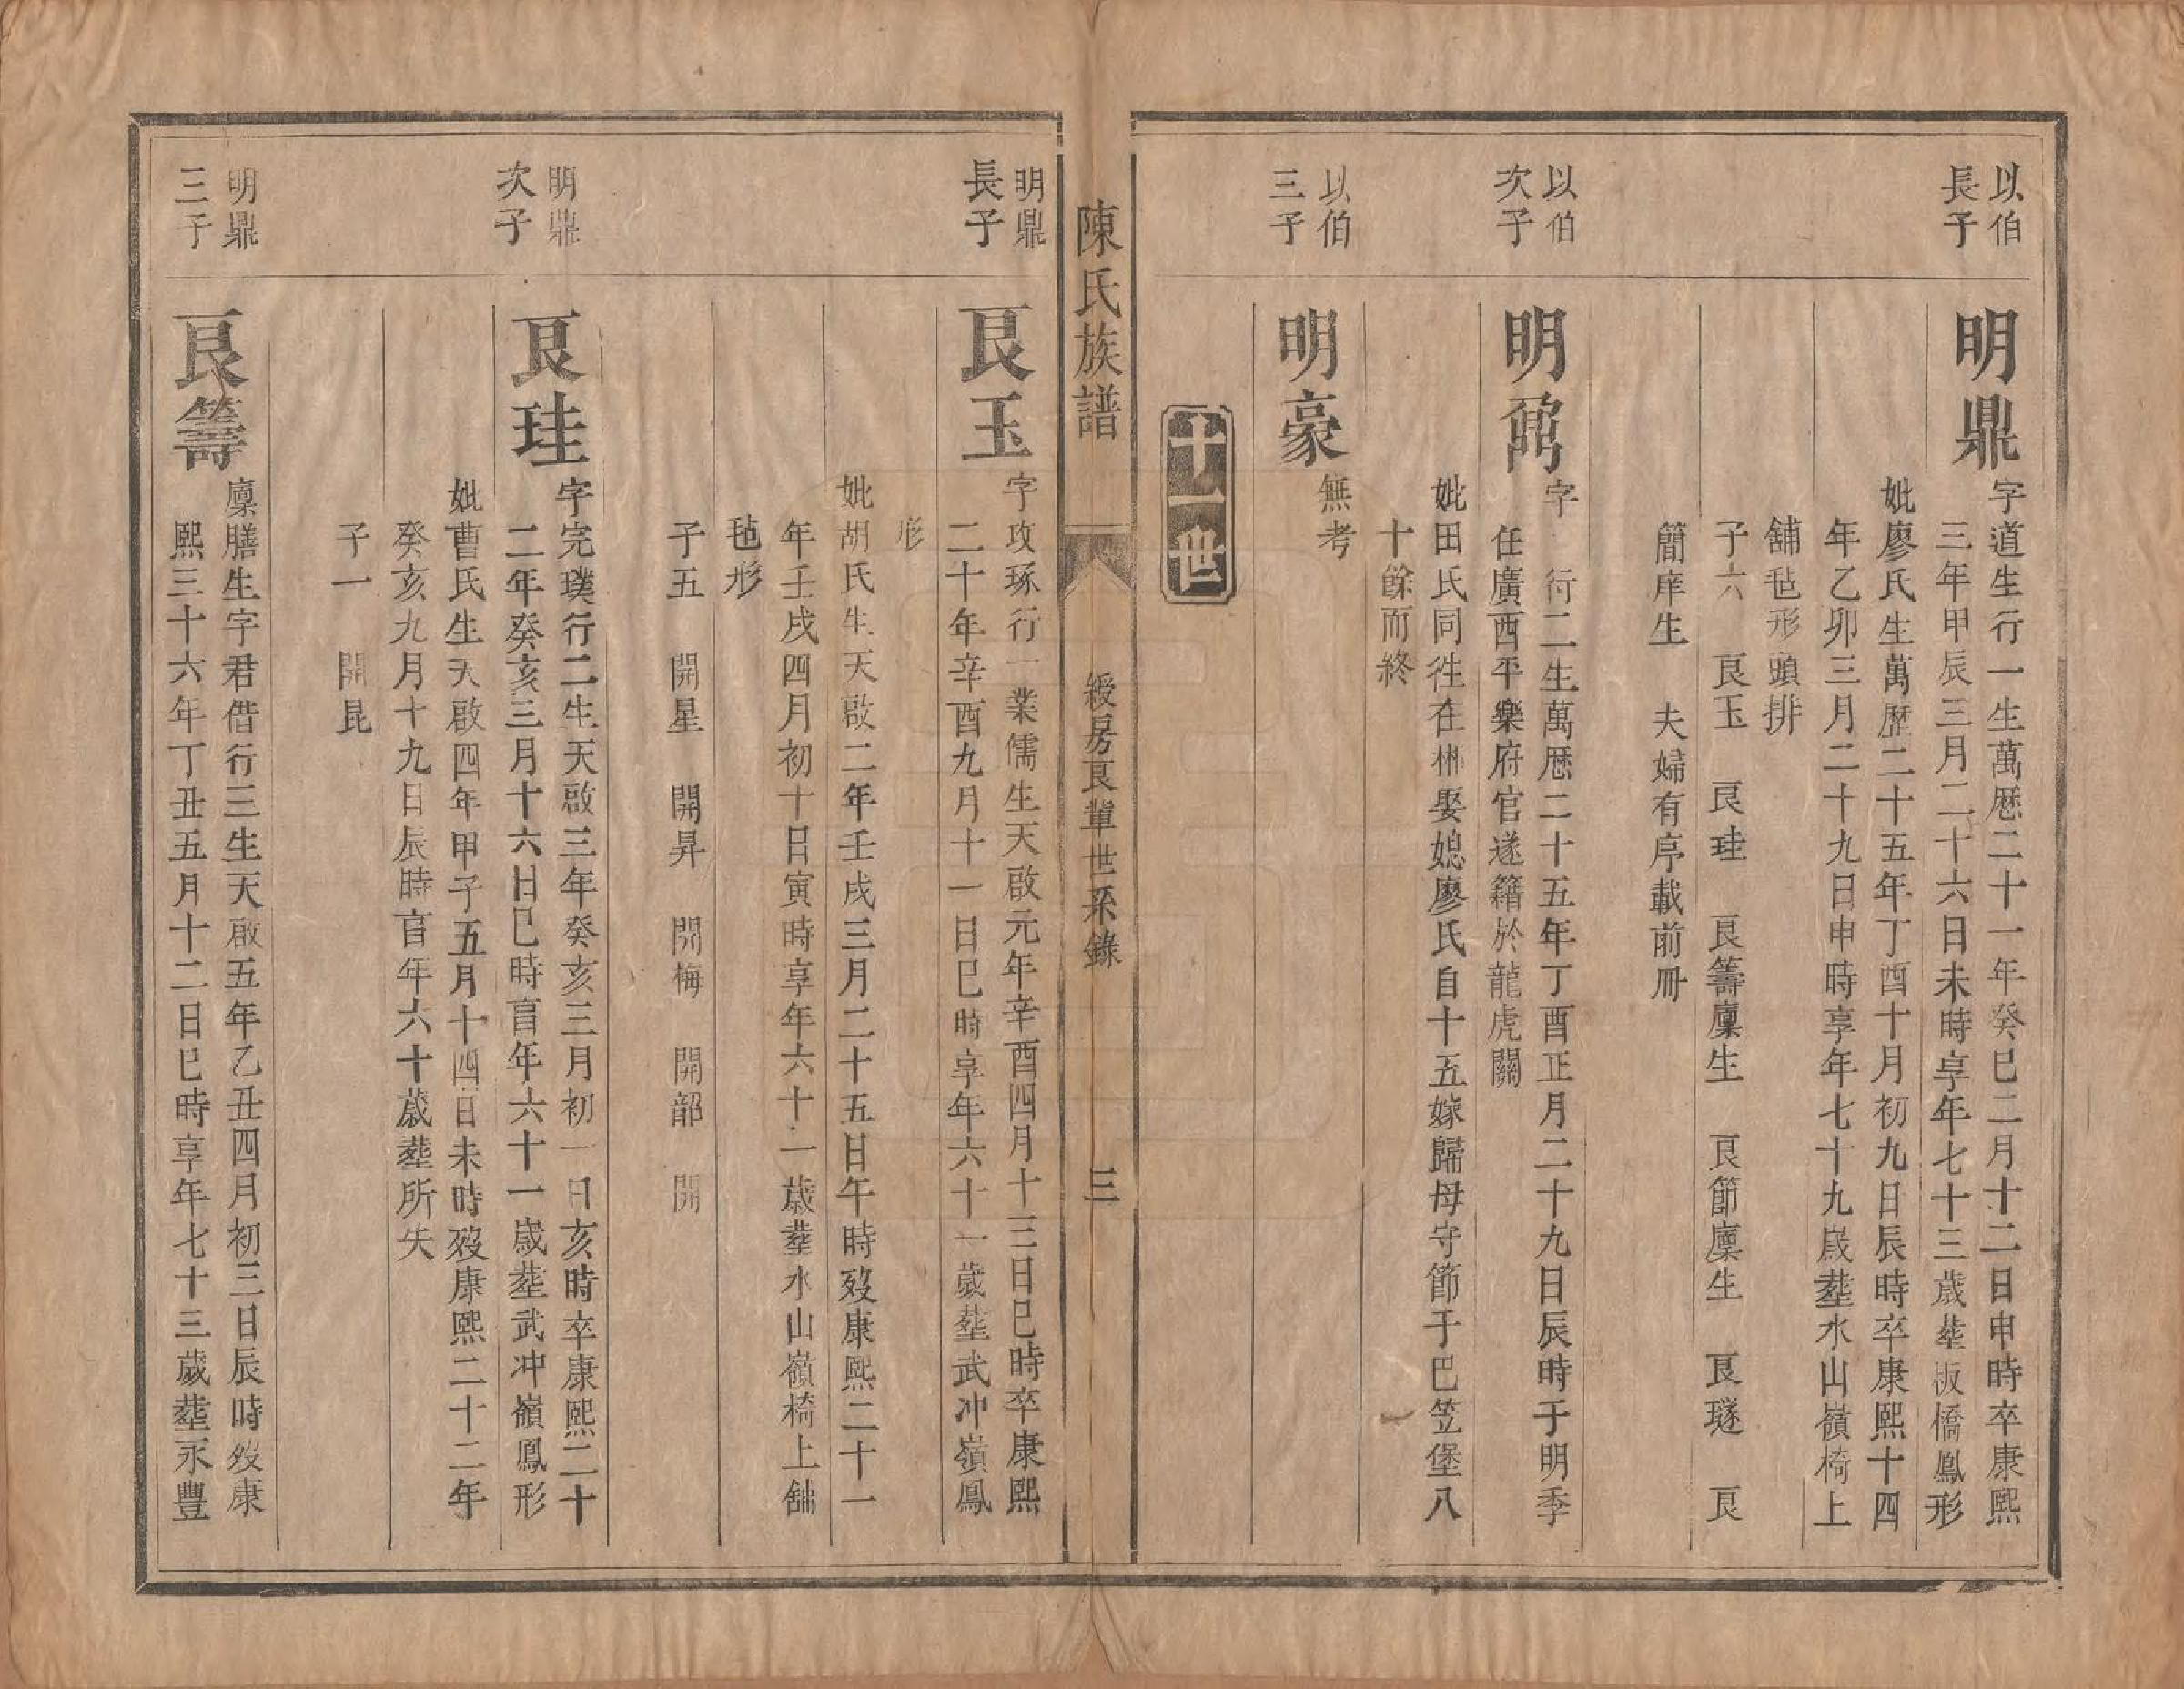 以伯
長子
明鼎
字道生行一生萬歷二十一年癸巳二月十二日申時卒康熙
三年甲辰三月二十六日未時享年七十三歲塟板橋鳳形
妣廖氏生萬歷二十五年丁酉十月初九日辰時卒康熙十四
年乙卯三月二十九日申時享年七十九歲塟水山嶺椅上
舖毡形頭排
子六 艮玉 艮珪 艮籌廩生 艮節廩生 艮璲 艮
簡庠生 夫婦有序載前冊
以伯
次子
明鼐
字 行二生萬歷二十五年丁酉正月二十九日辰時于明季
任廣西平樂府官遂籍於龍虎關
妣田氏同徃在郴娶媳廖氏自十五嫁歸母守節于巴笠堡八
十餘而終
以伯
三子
明豪
無考
十一世
陳氏族譜
綬房艮輩世系錄
三
明鼎
長子
艮玉
字攻琢行一業儒生天啟元年辛酉四月十三日巳時卒康熙
二十年辛酉九月十一日巳時享年六十一歲塟武冲嶺鳳
形
妣胡氏生天啟二年壬戌三月二十五日午時歿康熙二十一
年壬戌四月初十日寅時享年六十一歲塟水山嶺椅上舖
毡形
子五 開星 開昇 開梅 開韶 開
明鼎
次子
艮珪
字完璞行二生天啟三年癸亥三月初一日亥時卒康熙二十
二年癸亥三月十六日巳時享年六十一歲塟武冲嶺鳳形
妣曹氏生天啟四年甲子五月十四日未時歿康熙二十二年
癸亥九月十九日辰時享年六十歲塟所失
子一 開昆
明鼎
三子
艮籌
廩膳生字君借行三生天啟五年乙丑四月初三日辰時歿康
熙三十六年丁丑五月十二日巳時享年七十三歲塟永豐